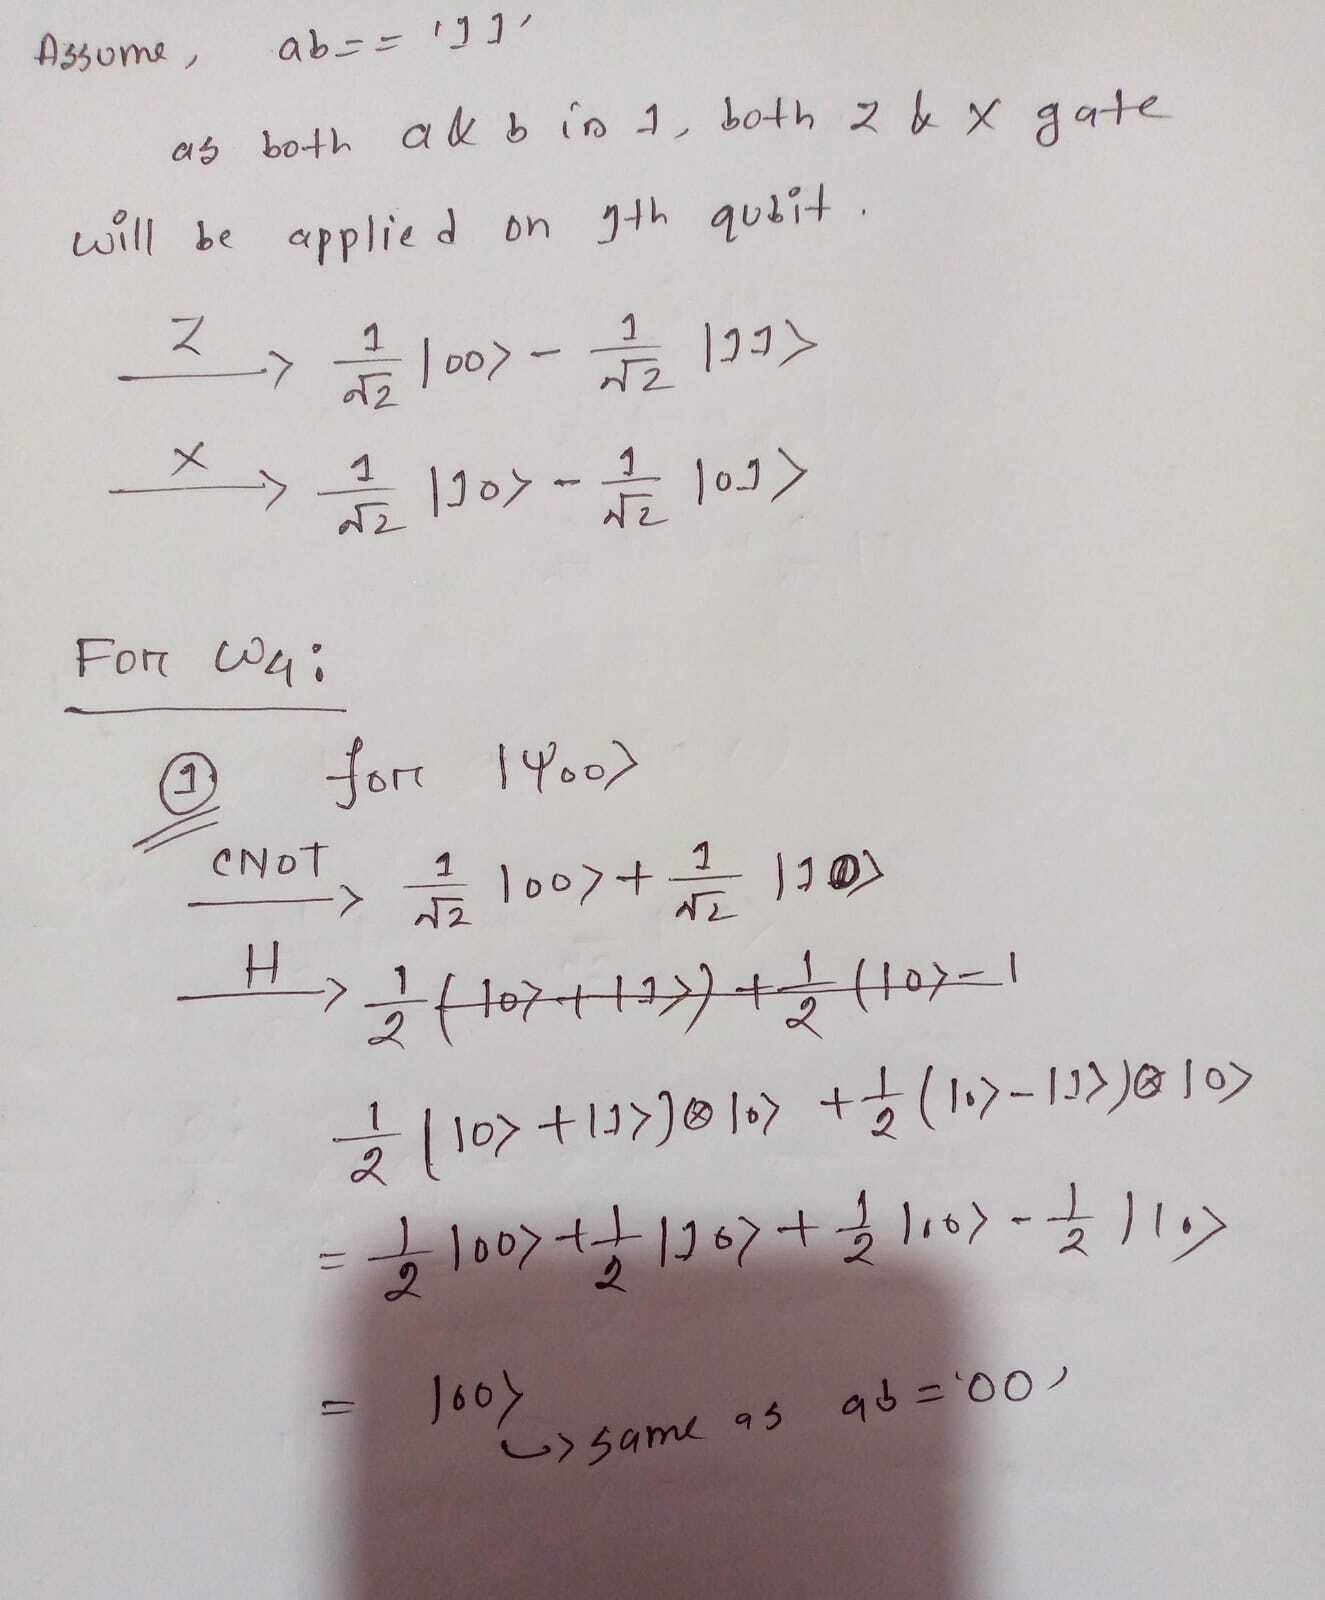 Assume, ab== '11'
as both a & b is 1, both Z & X gate
will be applied on 1th qubit.
Z → 1/√2 |00> - 1/√2 |11>
X → 1/√2 |10> - 1/√2 |01>
For W4:
① for |Ψ00>
CNOT → 1/√2 |00> + 1/√2 |10>
H → 1/2 (|0> + |1>) + 1/2 (|0> - |
1/2 (|0> + |1>) ⊗ |0> + 1/2 (|0> - |1>) ⊗ |0>
= 1/2 |00> + 1/2 |10> + 1/2 |00> - 1/2 |10>
= |00>
↪ same as ab = '00'